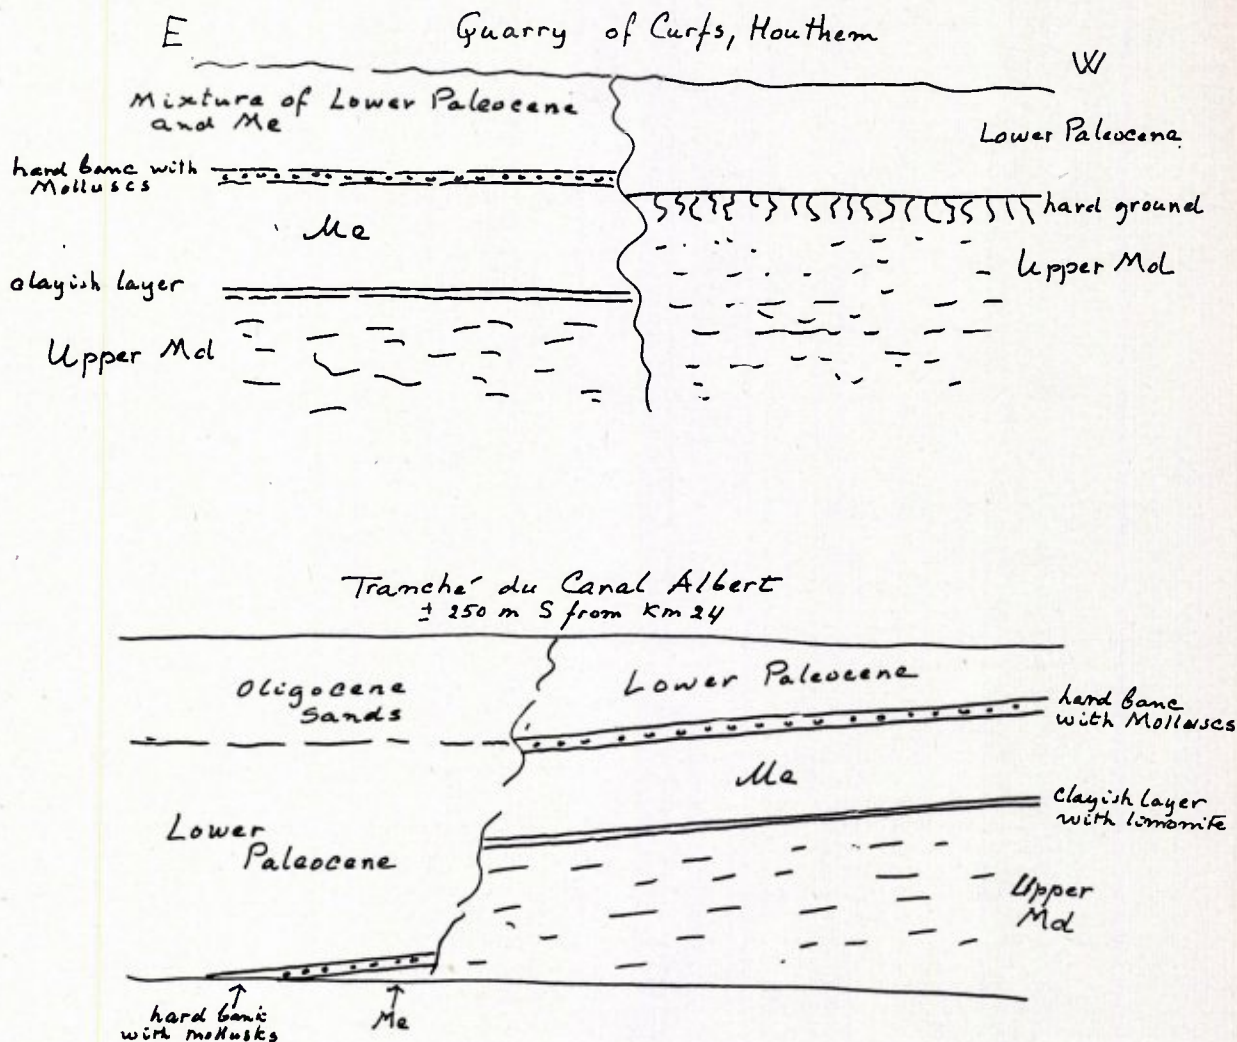 E
Quarry of Curfs, Houthem
W
Mixtura of Lower Paleocene
and Me
Lower Paleocena
hard banc with
Molluscs
hard ground
Me
Upper Md
clayish layer
Upper Md
Tranché du Canal Albert
± 250 m S from Km 24
Oligocene
Sands
Lower Paleocene
hard banc
with Molluscs
Me
clayish layer
with limonite
Lower
Paleocene
Upper
Md
hard bank
with mollusks
Me